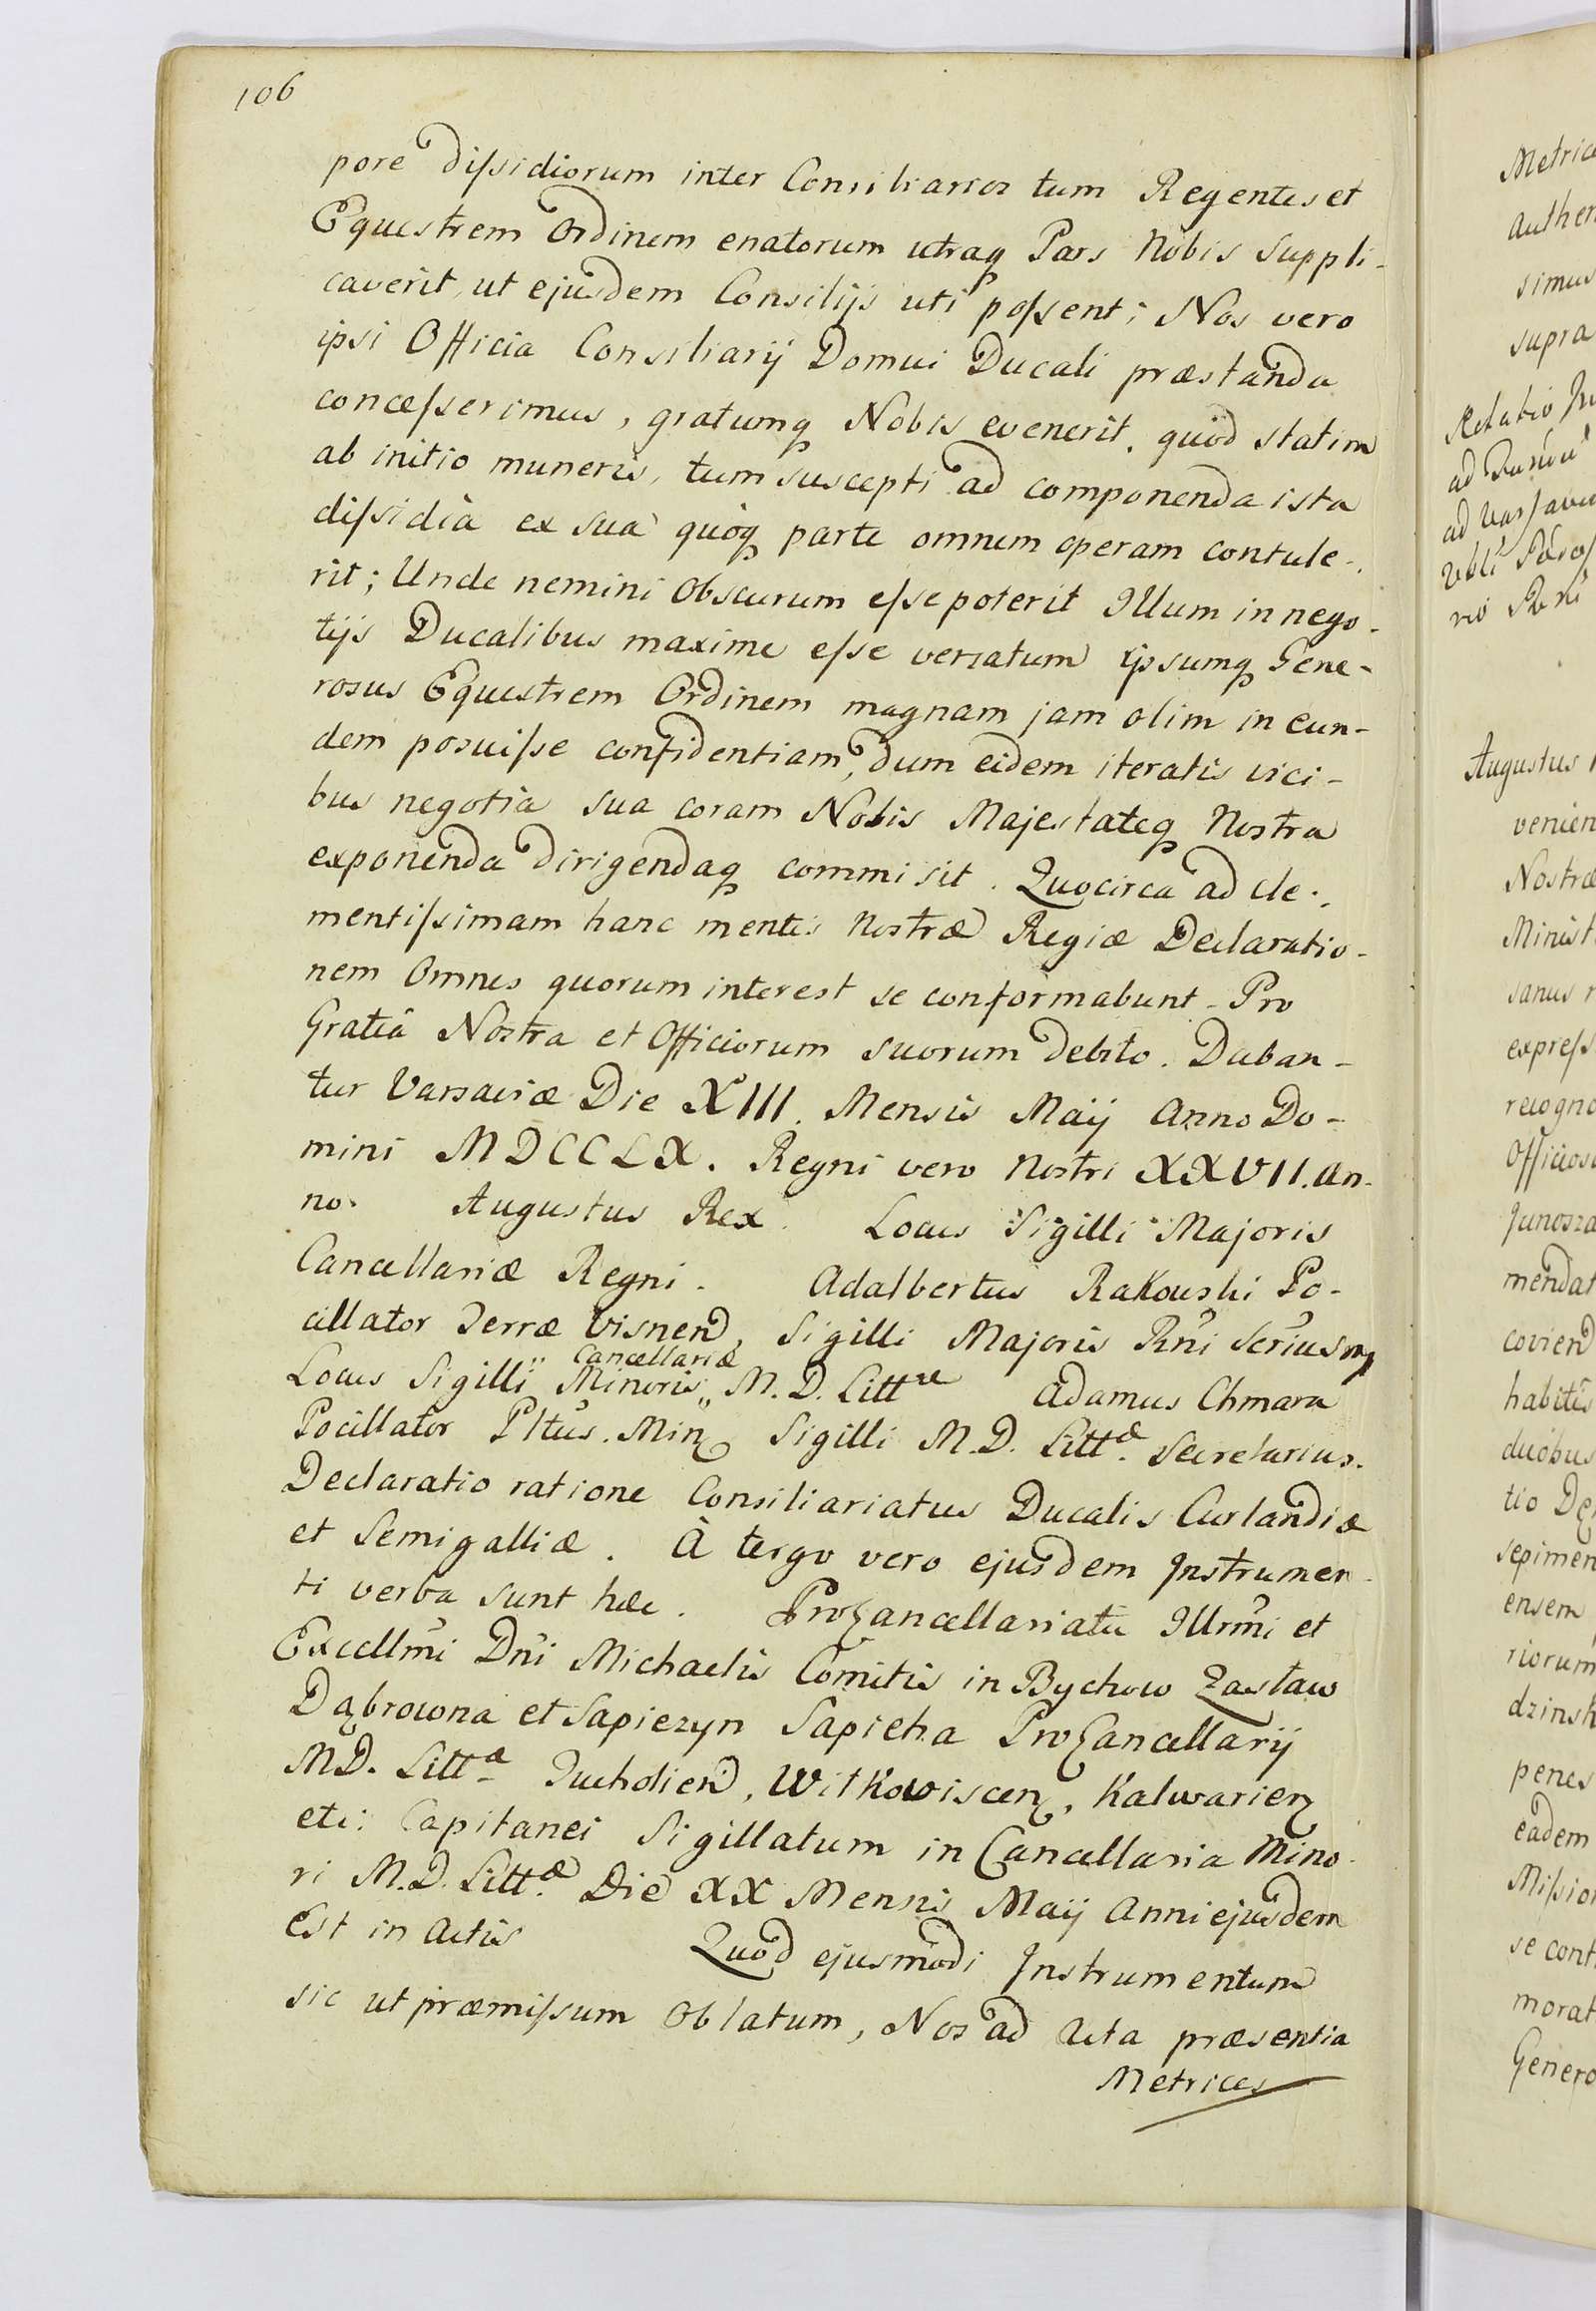 106
pore dissidiorum inter Consiliarios tum Regentes et
Equestrem Ordinem enatorum utraq Pars Nobis suppli-
caverit, ut ejusdem Consilijs uti possent; Nos vero
ipsi Officia Consiliarij Domui Ducali præstanda
concesserimus, gratumq Nobis evenerit, quòd statim
ab initio muneris, tum suscepti ad componenda ista
dissidia ex sua quòq parte omnem operam contule-
rit; Unde nemini Obscurum esse poterit Illum in nego-
tijs Ducalibus maxime esse versatum ipsumq Gene-
rosus Equestrem Ordinem magnam jam olim in eun-
dem posuisse confidentiam, dum eidem iteratis vici-
bus negotia sua coram Nobis Majestateq Nostra
exponenda dirigendaq commisit. Quocirca ad cle-
mentissimam hanc mentis Nostræ Regiæ Declaratio-
nem Omnes quorum interest se conformabunt - Pro
Gratiâ Nostra et Officiorum suorum debito. Daban-
tur Varsaviæ Die XIII. Mensis Maij Anno Do-
mini MDCCLX. Regni vero Nostri XXVII. An-
no. Augustus Rex. Locus Sigilli Majoris
Cancellariæ Regni. Adalbertus Rakowski Po-
cillator Terræ Visnen, Sigilli Majoris Rni Scriusmp
Cancellariæ
Locus Sigilli Minoris M. D. Litt æ Adamus Chmara
Pocillator Pltus. Min Sigilli M.D. Litt æ. Secretarius.
Declaratio ratione Consiliariatus Ducalis Curlandiæ
et Semigalliæ. À tergo vero ejusdem Instrumen-
ti verba sunt hæc. ProCancellariatu Illrmi et
Excellmi Dni Michaelis Comitis in Bychow Zasław
Dąbrowna et Sapiezyn Sapieha ProCancellarij
MD. Litt æ Tucholien, Witkowiscen, Kalwarien
etc: Capitanei Sigillatum in Cancellaria Mino-
ri M.D. Litt æ Die XX Mensis Maij Anni ejusdem
Est in Actis Quòd ejusmodi Instrumentum
sic ut præmissum Oblatum, Nos ad Acta præsentia
Metrices
Metrice
Authen
simus
supra
ad Varsavi
Augustus
venien
Nostræ
Minist
sanus r
express
recogno
Officios
Junosza
mendat
covien
habitis
duobus
tio De
sepimen
ensem
riorum
dzinsk
penes
eadem
Missio
se cont
morat
Genero